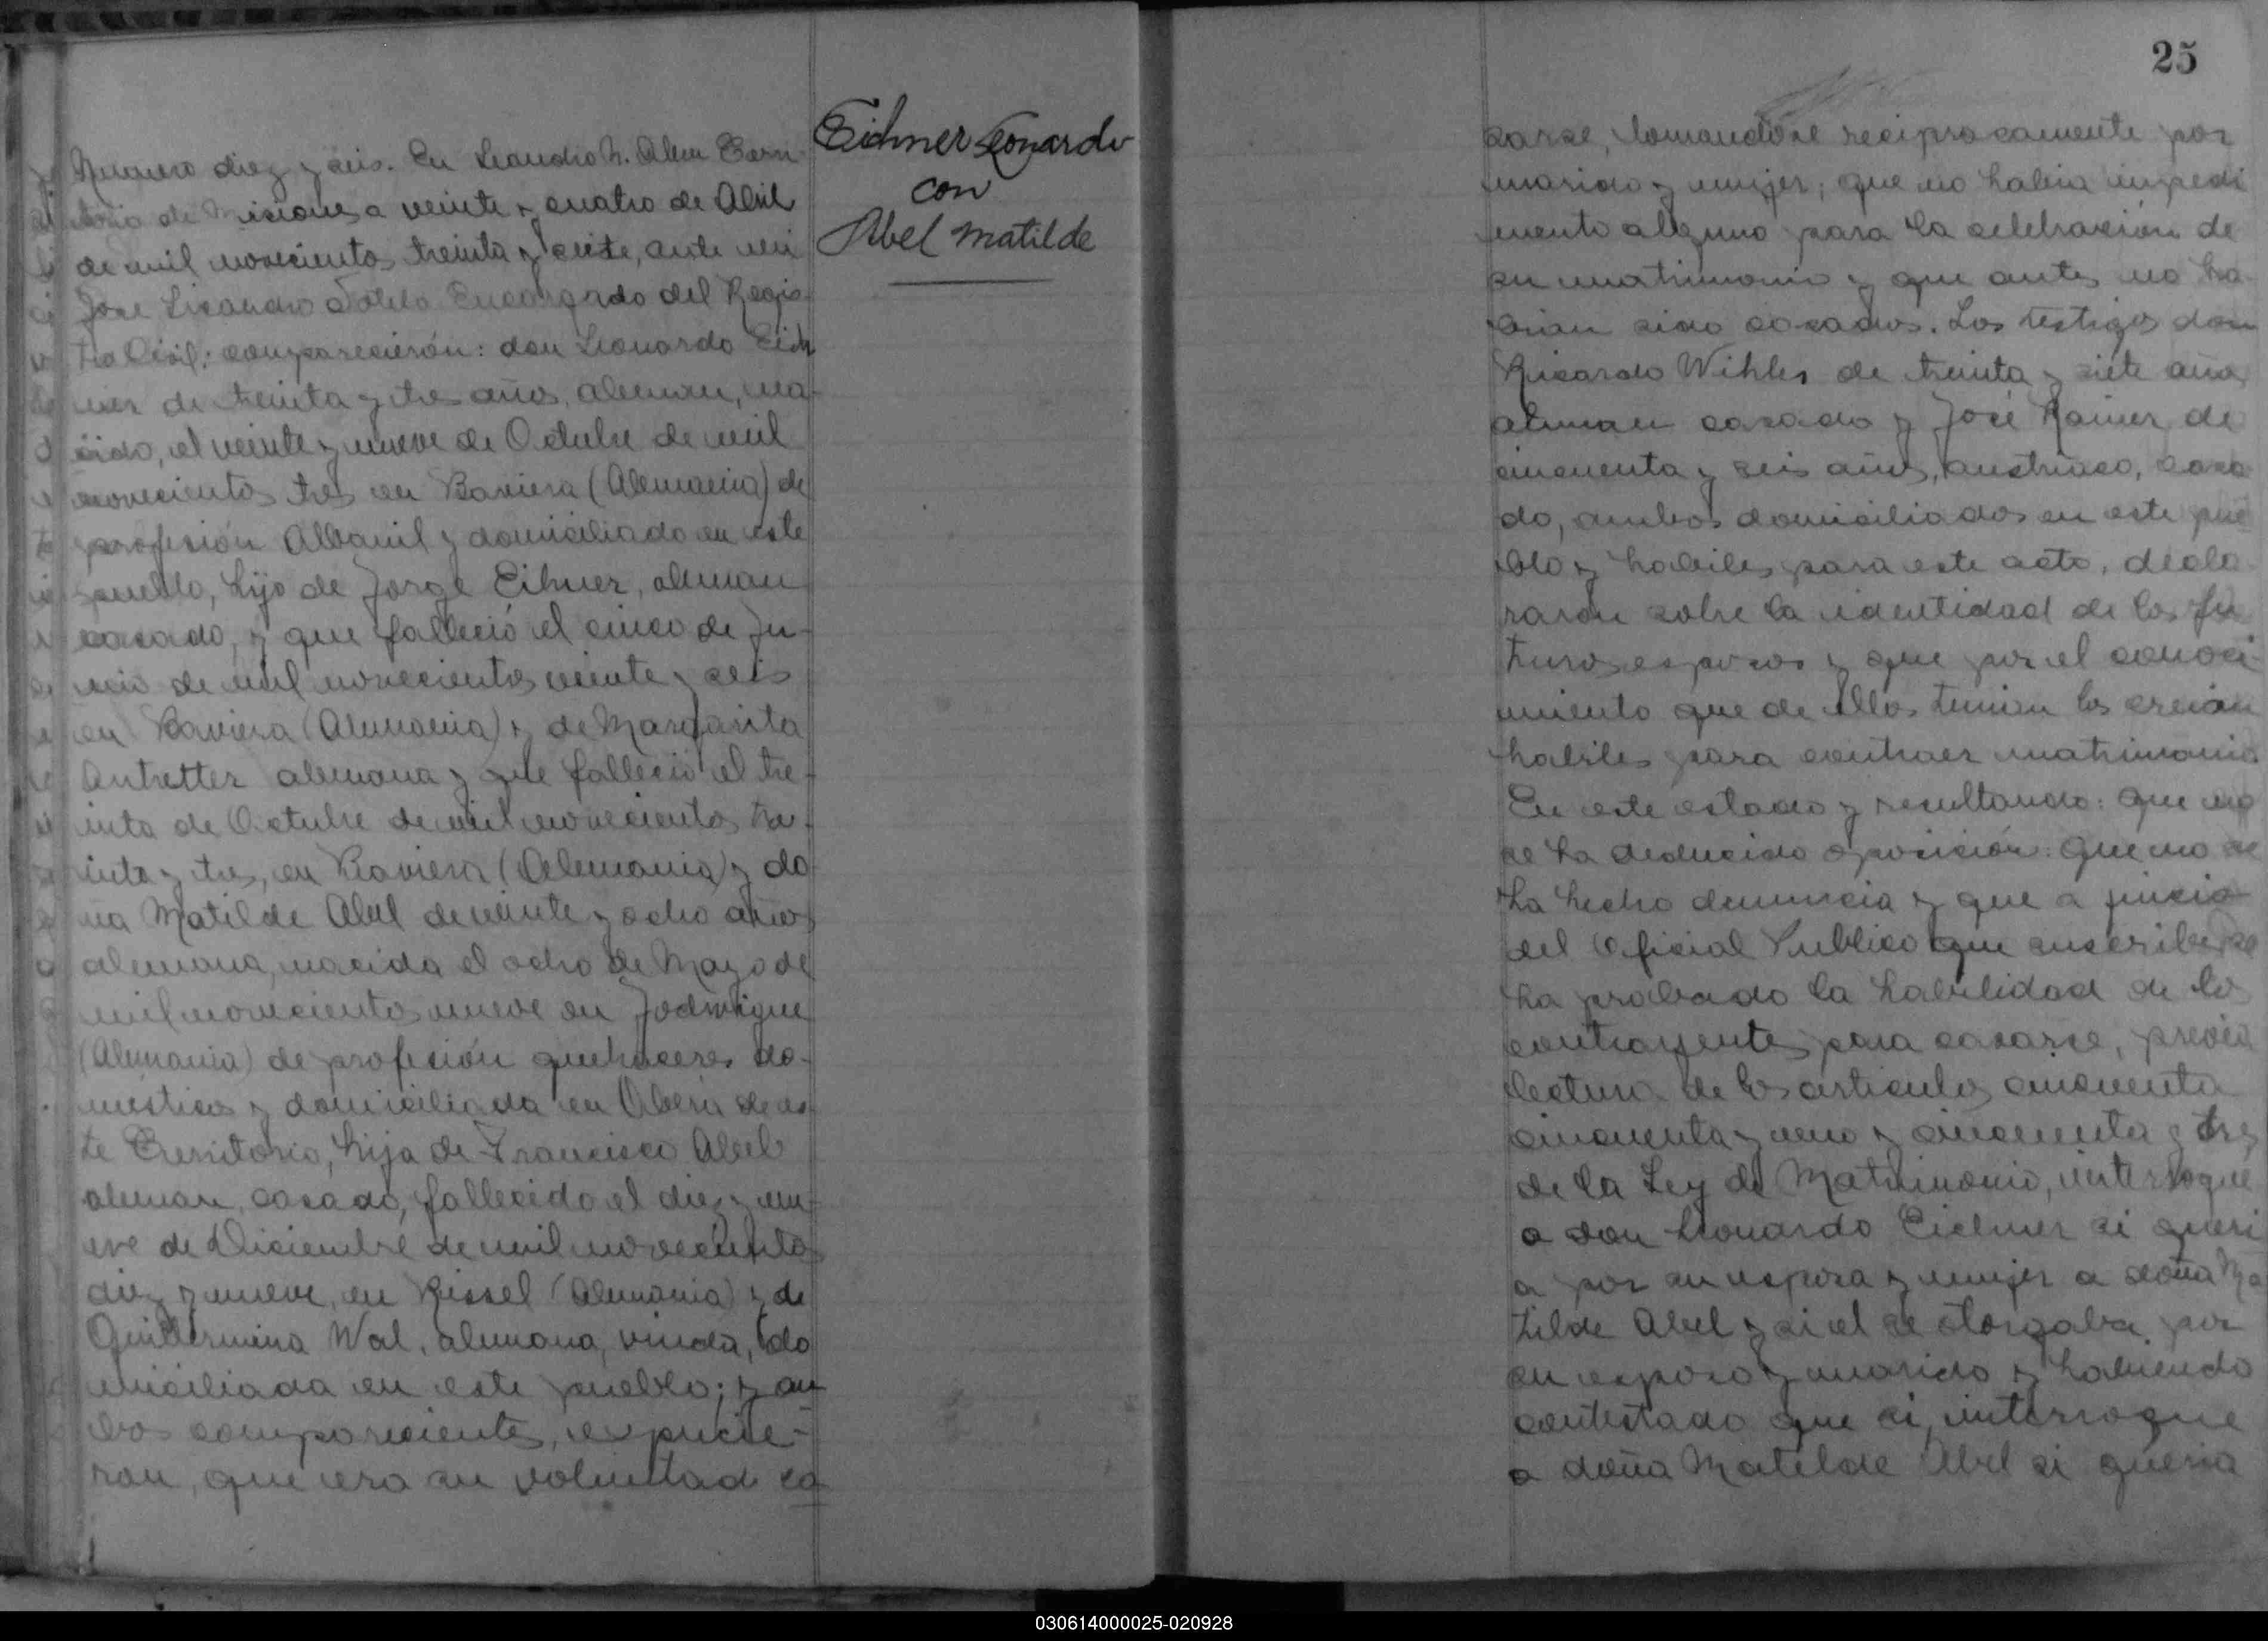 Numero diez y seis. En Leandro N. Alem Terri-
torio de Misiones a veinte y cuatro de Abril
de mil novecientos treinta y siete, ante mi
Jose Lisandro Sotelo Encargado del Regis-
tro Civil: comparecierón: don Leonardo Eich
ner de treinta y tres años, aleman, na-
cido, el veinte y nueve de Octubre de mil
novecientos tres en Baviera (Alemania) de
profesión Albanil y domiciliado en este
pueblo, hijo de Jorge Eihner, aleman
casado, y que falleció el cinco de Ju-
nio de mil novecientos veinte y seis
en Baviera (Alemania) y de Margarita
Antretter alemana y que falleció el tre-
inta de Octubre de mil novecientos tre-
inta y tres, en Baviera (Alemania) y do-
ña Matilde Abel de veinte y ocho años
alemana, nacida el ocho de Mayo de
mil novecientos nueve en
(Alemania) de profesión quehaceres do-
mesticos y domiciliada en Oberá de es-
te Territorio, hija de Francisco Abel
aleman, casado, fallecido el diez y nu-
eve de Diciembre de mil novecientos
diez y nueve, en Kissel (Alemania) y de
Guillermina Wal, alemana, viuda, do
miciliada en este pueblo; y am
bos comparecientes, expucie-
ron, que era su voluntad ca
Eichner Leonardo
con
Abel Matilde
25
sarse, tomandóse reciprocamente por
marido y mujer; que no habia impedi
mento alguno para la celebración de
su matrimonio y que antes no ha-
bian sido casados. Los testigos don
Ricardo Wihler de treinta y siete años
aleman casado y José Rainer de
cincuenta y seis años, austriaco, casa
do, ambos domiciliados en este pue
blo y habiles para este acto, decla
raron sobre la identidad de los fu
turos esposos y que por el conoci
miento que de ellos tenian los creian
habiles para contraer matrimonio
En este estado y resultando: que no
se ha deducido oposición: Que no se
ha hecho denuncia y que a juicio
del Oficial Publico que suscribe, se
ha probado la habilidad de los
contrayentes para casarse, previa
lectura de los articulos cincuenta
cincuenta y uno y cincuenta y tres
de la Ley de Matrimonio, interrogue
a don Leonardo Eichner si queri
a por su esposa y mujer a doña Ma
tilde Abel y si el se otorgaba por
su esposo y marido y habiendo
contestado que si, interrogue
a doña Matilde Abel si queria
030614000025-020928